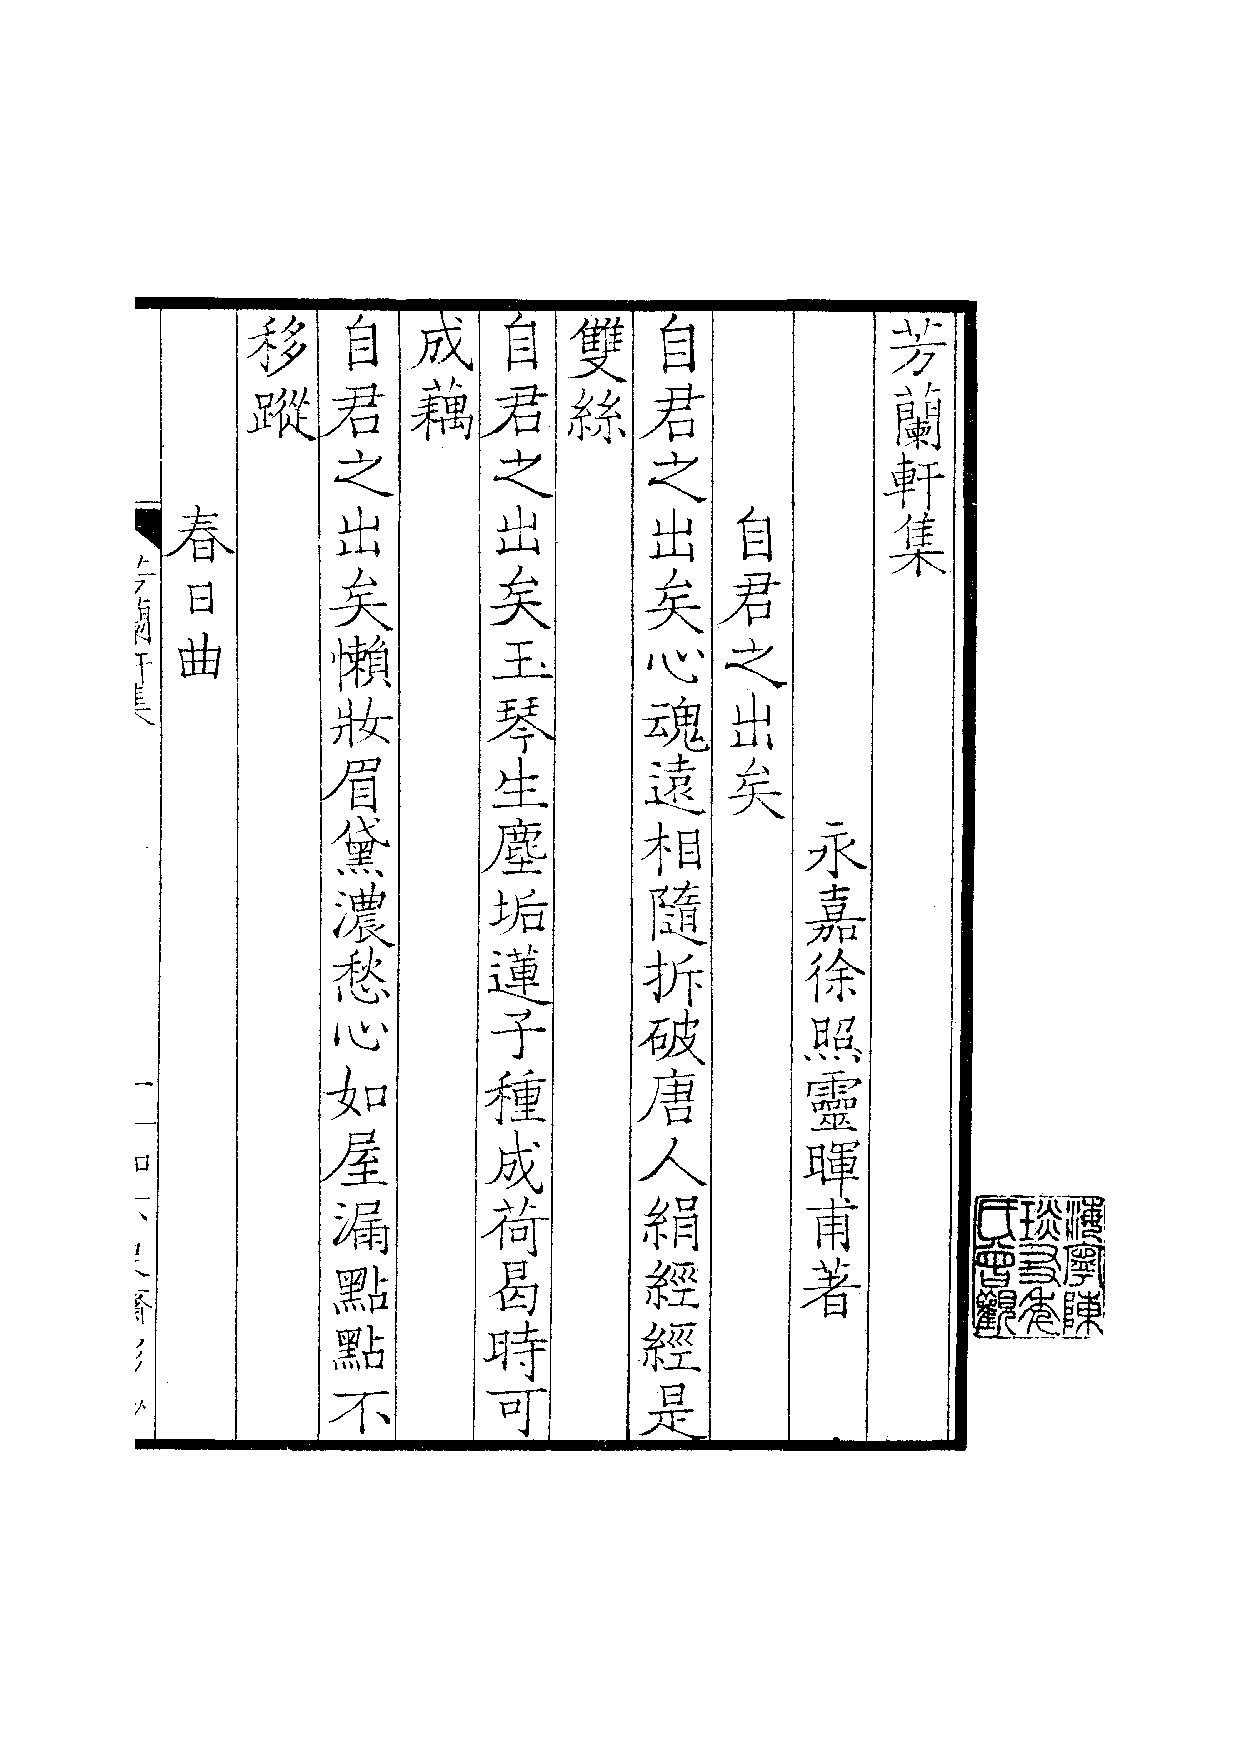 芳蘭軒集
永嘉徐照靈暉甫著
自君之出矣
自君之出矣心魂遠相隨拆破唐人絹經經是
雙絲
自君之出矣玉琴生塵垢蓮子種成荷曷時可
成藕
自君之出矣懶妝眉黛濃愁心如屋漏點點不
移蹤
春日曲
芳蘭軒集
海寧陳
琰友年
氏曾觀